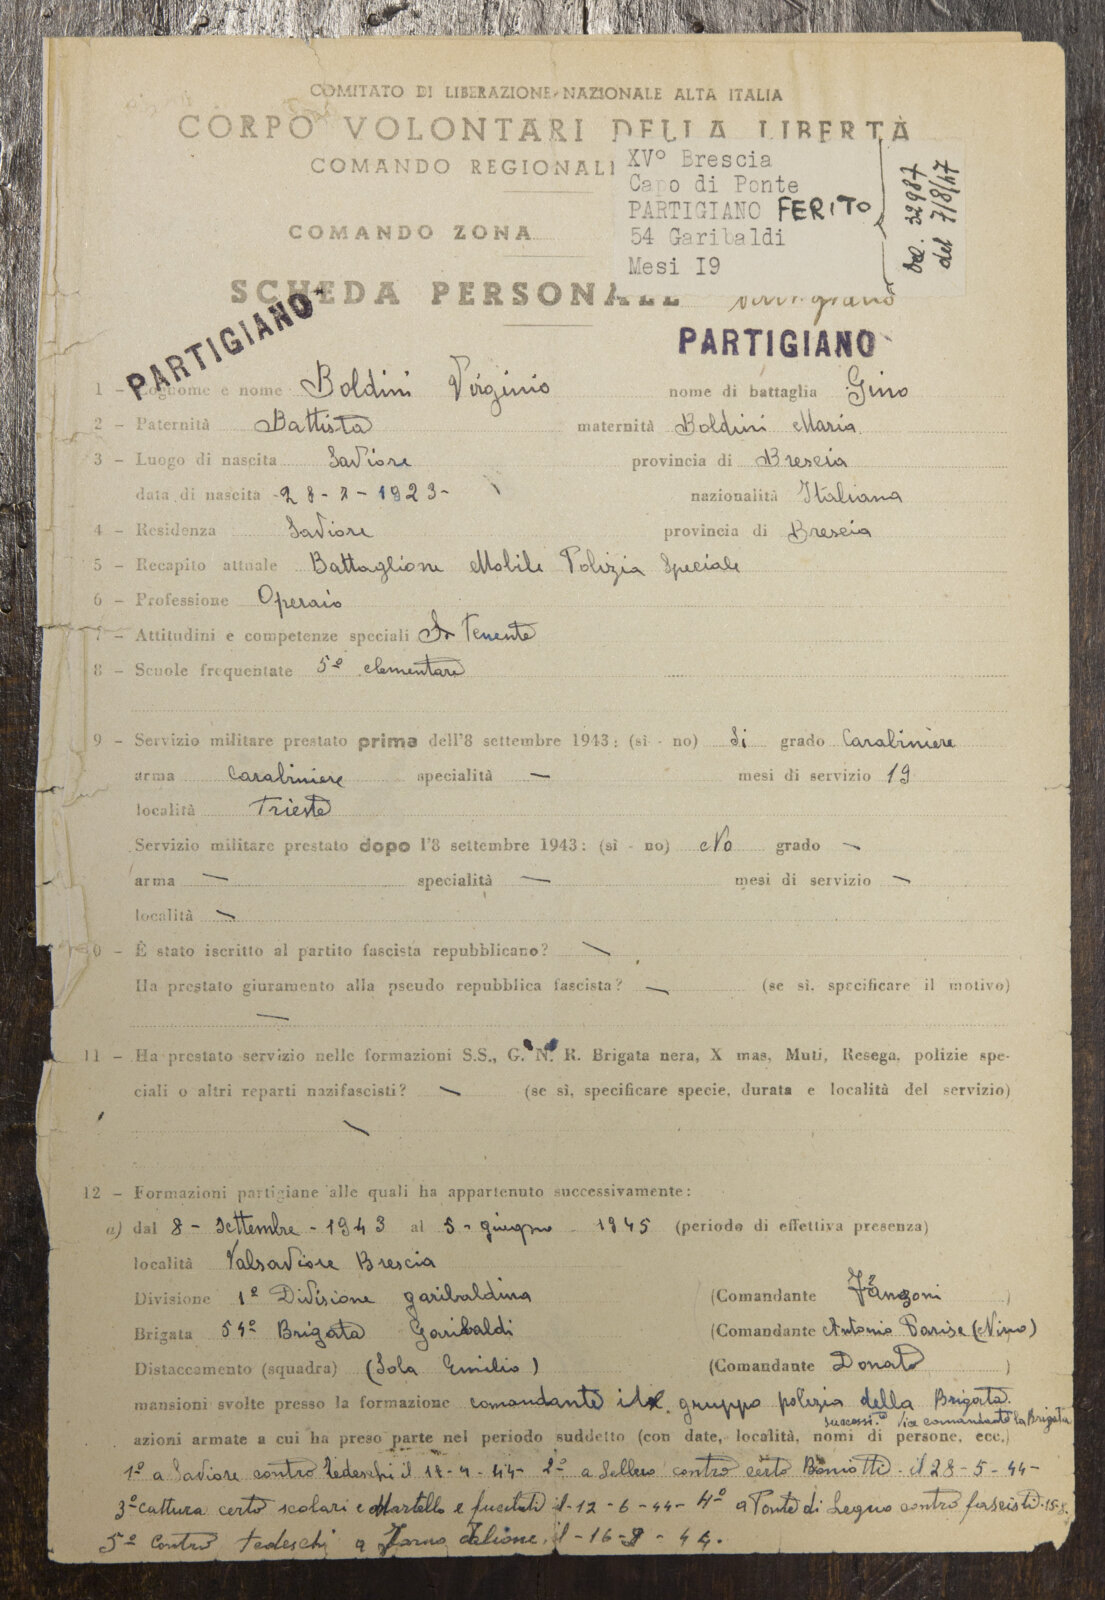 COMITATO DI LIBERAZIONE NAZIONALE ALTA ITALIA
CORPO VOLONTARI DELLA LIBERTÀ
COMANDO REGIONALE
XV° Brescia
Capo di Ponte
PARTIGIANO FERITO
54 Garibaldi
Mesi I9
Del. 32987
del 7/8/47
COMANDO ZONA
SCHEDA PERSONALE partigiano
PARTIGIANO
PARTIGIANO
1 - Cognome e nome Boldini Virginio nome di battaglia Gino
2 - Paternità Battista maternità Boldini Maria
3 - Luogo di nascita Saviore provincia di Brescia
data di nascita 28-2-1923- nazionalità Italiana
4 - Residenza Saviore provincia di Brescia
5 - Recapito attuale Battaglione Mobile Polizia Speciale
6 - Professione Operaio
7 - Attitudini e competenze speciali Tenente
8 - Scuole frequentate 5º elementare
9 - Servizio militare prestato prima dell'8 settembre 1943: (sì - no) Si grado Carabiniere
arma Carabiniere specialità — mesi di servizio 19
località Trieste
Servizio militare prestato dopo l'8 settembre 1943: (sì - no) No grado —
arma — specialità — mesi di servizio —
località —
0 - È stato iscritto al partito fascista repubblicano? —
Ha prestato giuramento alla pseudo repubblica fascista? — (se sì, specificare il motivo)
—
11 - Ha prestato servizio nelle formazioni S.S., G. N. R. Brigata nera, X mas, Muti, Resega, polizie spe-
ciali o altri reparti nazifascisti? — (se sì, specificare specie, durata e località del servizio)
—
12 - Formazioni partigiane alle quali ha appartenuto successivamente:
a) dal 8 - Settembre - 1943 al 5 - giugno 1945 (periodo di effettiva presenza)
località Valsaviore Brescia
Divisione 1º Divisione garibaldina (Comandante )
Brigata 54º Brigata Garibaldi (Comandante Antonio Parise (Nino)
Distaccamento (squadra) (Sola Emilio) (Comandante Donato )
mansioni svolte presso la formazione comandante gruppo polizia della Brigata.
Vice comandante la Brigata
azioni armate a cui ha preso parte nel periodo suddetto (con date, località, nomi di persone, ecc.)
1º a Saviore contro Tedeschi il 18-4-44- 2º a Sellero contro certo il 28-5-44-
3º cattura certo scolari e Martello e fucilati il-12-6-44- 4º a Ponte di Legno contro fascisti
5º contro tedeschi a il-16-9-44.